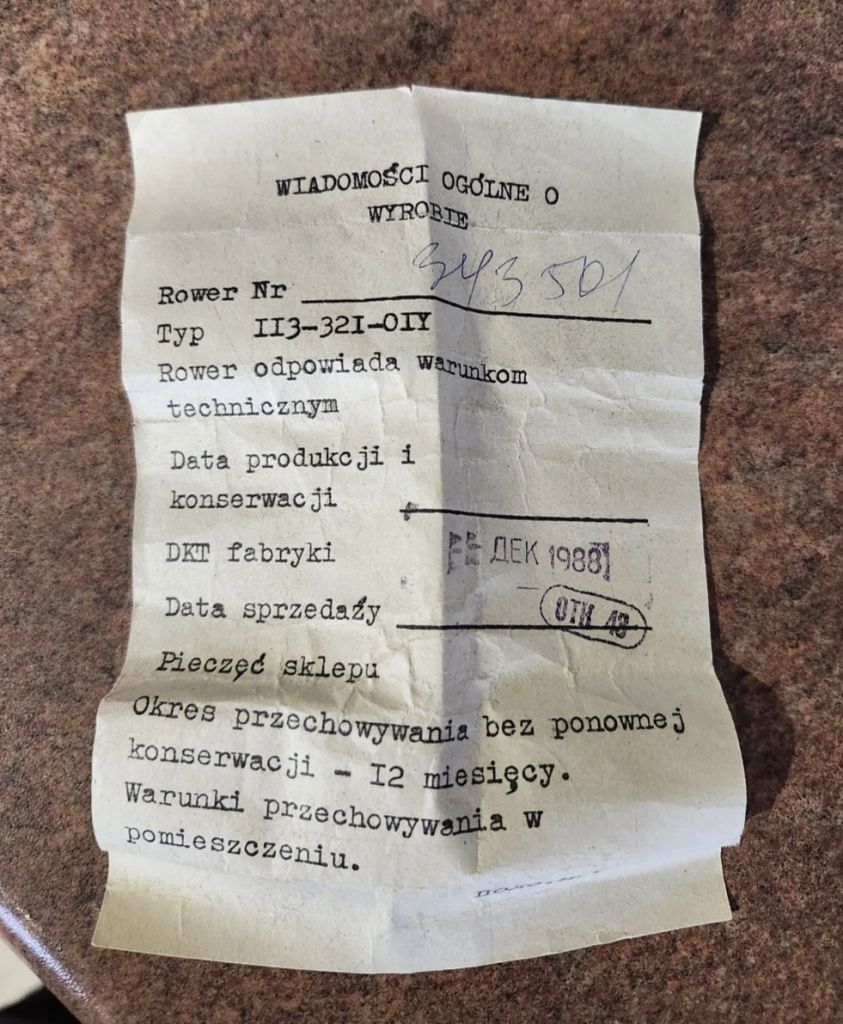 WIADOMOŚCI OGÓLNE O
WYROBIE
Rower Nr 343501
Typ II3-32I-OIY
Rower odpowiada warunkom
technicznym
Data produkcji i
konserwacji
DKT fabryki
ДЕК 1988
Data sprzedaży
ОТК 43
Pieczęć sklepu
Okres przechowywania bez ponownej
konserwacji - I2 miesięcy.
Warunki przechowywania w
pomieszczeniu.